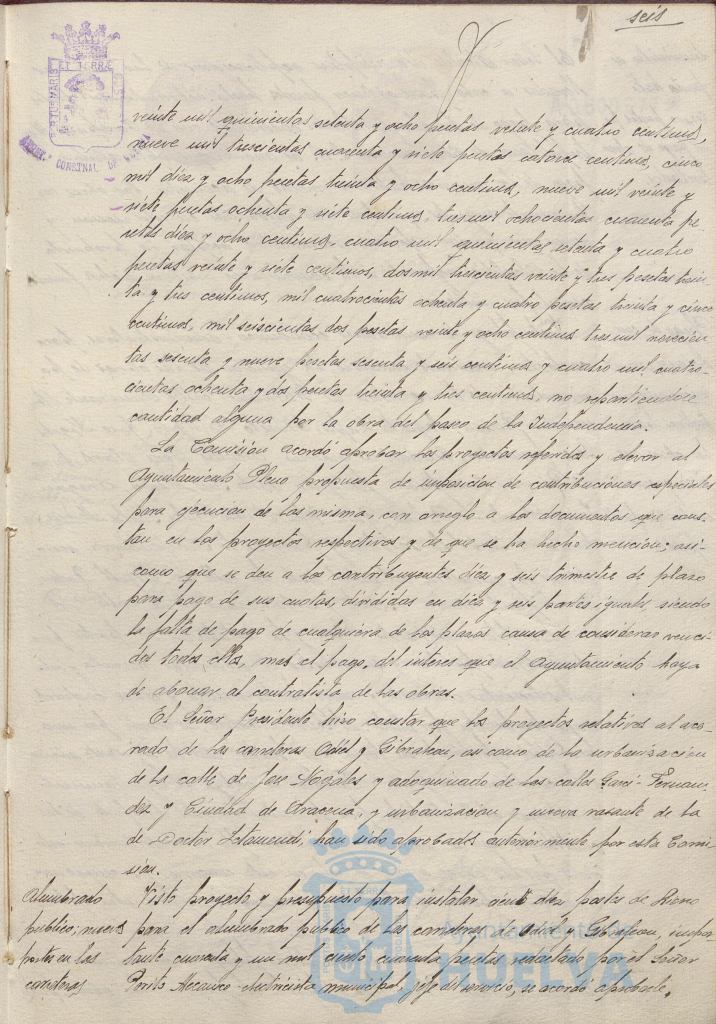 seis
veinte mil quinientas setenta y ocho pesetas veinte y cuatro centimos,
nueve mil trescientas cuarenta y siete pesetas catorce centimos, cinco
mil diez y ocho pesetas treinta y ocho centimos, nueve mil veinte y
siete pesetas ochenta y siete centimos, tres mil ochocientas cuarenta pe
setas diez y ocho centimos, cuatro mil quinientas setenta y cuatro
pesetas veinte y siete centimos, dos mil trescientas veinte y tres pesetas trein
ta y tres centimos, mil cuatrocientas ochenta y cuatro pesetas treinta y cinco
centimos, mil seiscientas dos pesetas veinte y ocho centimos tres mil novecien
tas sesenta y nueve pesetas sesenta y seis centimos y cuatro mil cuatro-
cientas ochenta y dos pesetas treinta y tres centimos, no repartiendose
cantidad alguna por la obra del paseo de la Independencia.
La Comisión acordó aprobar los proyectos referidos y elevar al
Ayuntamiento Pleno propuesta de imposicion de contribuciones especiales
para ejecucion de los misma, con arreglo a los documentos que cons-
tan en los proyectos respectivos y de que se ha hecho mencion; asi-
como que se den a los contribuyentes diez y seis trimestre de plazo
para pago de sus cuotas, divididas en diez y seis partes iguales siendo
la falta de pago de cualquiera de los plazos causa de considerar venci
dos todos ellos, mas el pago, del interes que el Ayuntamiento haya
de abonar al contratista de las obras.
El Señor Presidente hizo constar que los proyectos relativos al ace-
rado de las carreteras Odiel y Gibraleon, asi como de la urbanizacion
de la calle de Jose Nogales y adoquinado de las calles Garci-Fernan
dez y Ciudad de Aracena, y urbanizacion y nueva rasante de la
de Doctor Letamendi, han sido aprobados anteriormente por esta Comi
sión.
Alumbrado Visto proyecto y presupuesto para instalar diez postes de hierro
publico; nuevos para el alumbrado publico de las carreteras de Odiel y Gibraleon, impor
postes en las tante cuarenta y un mil ciento cuarenta pesetas redactado por el Señor
carreteras Perito Mecanico-electricista municipal, jefe del servicio, se acordó aprobarle.
Ayuntamiento de
HUELVA